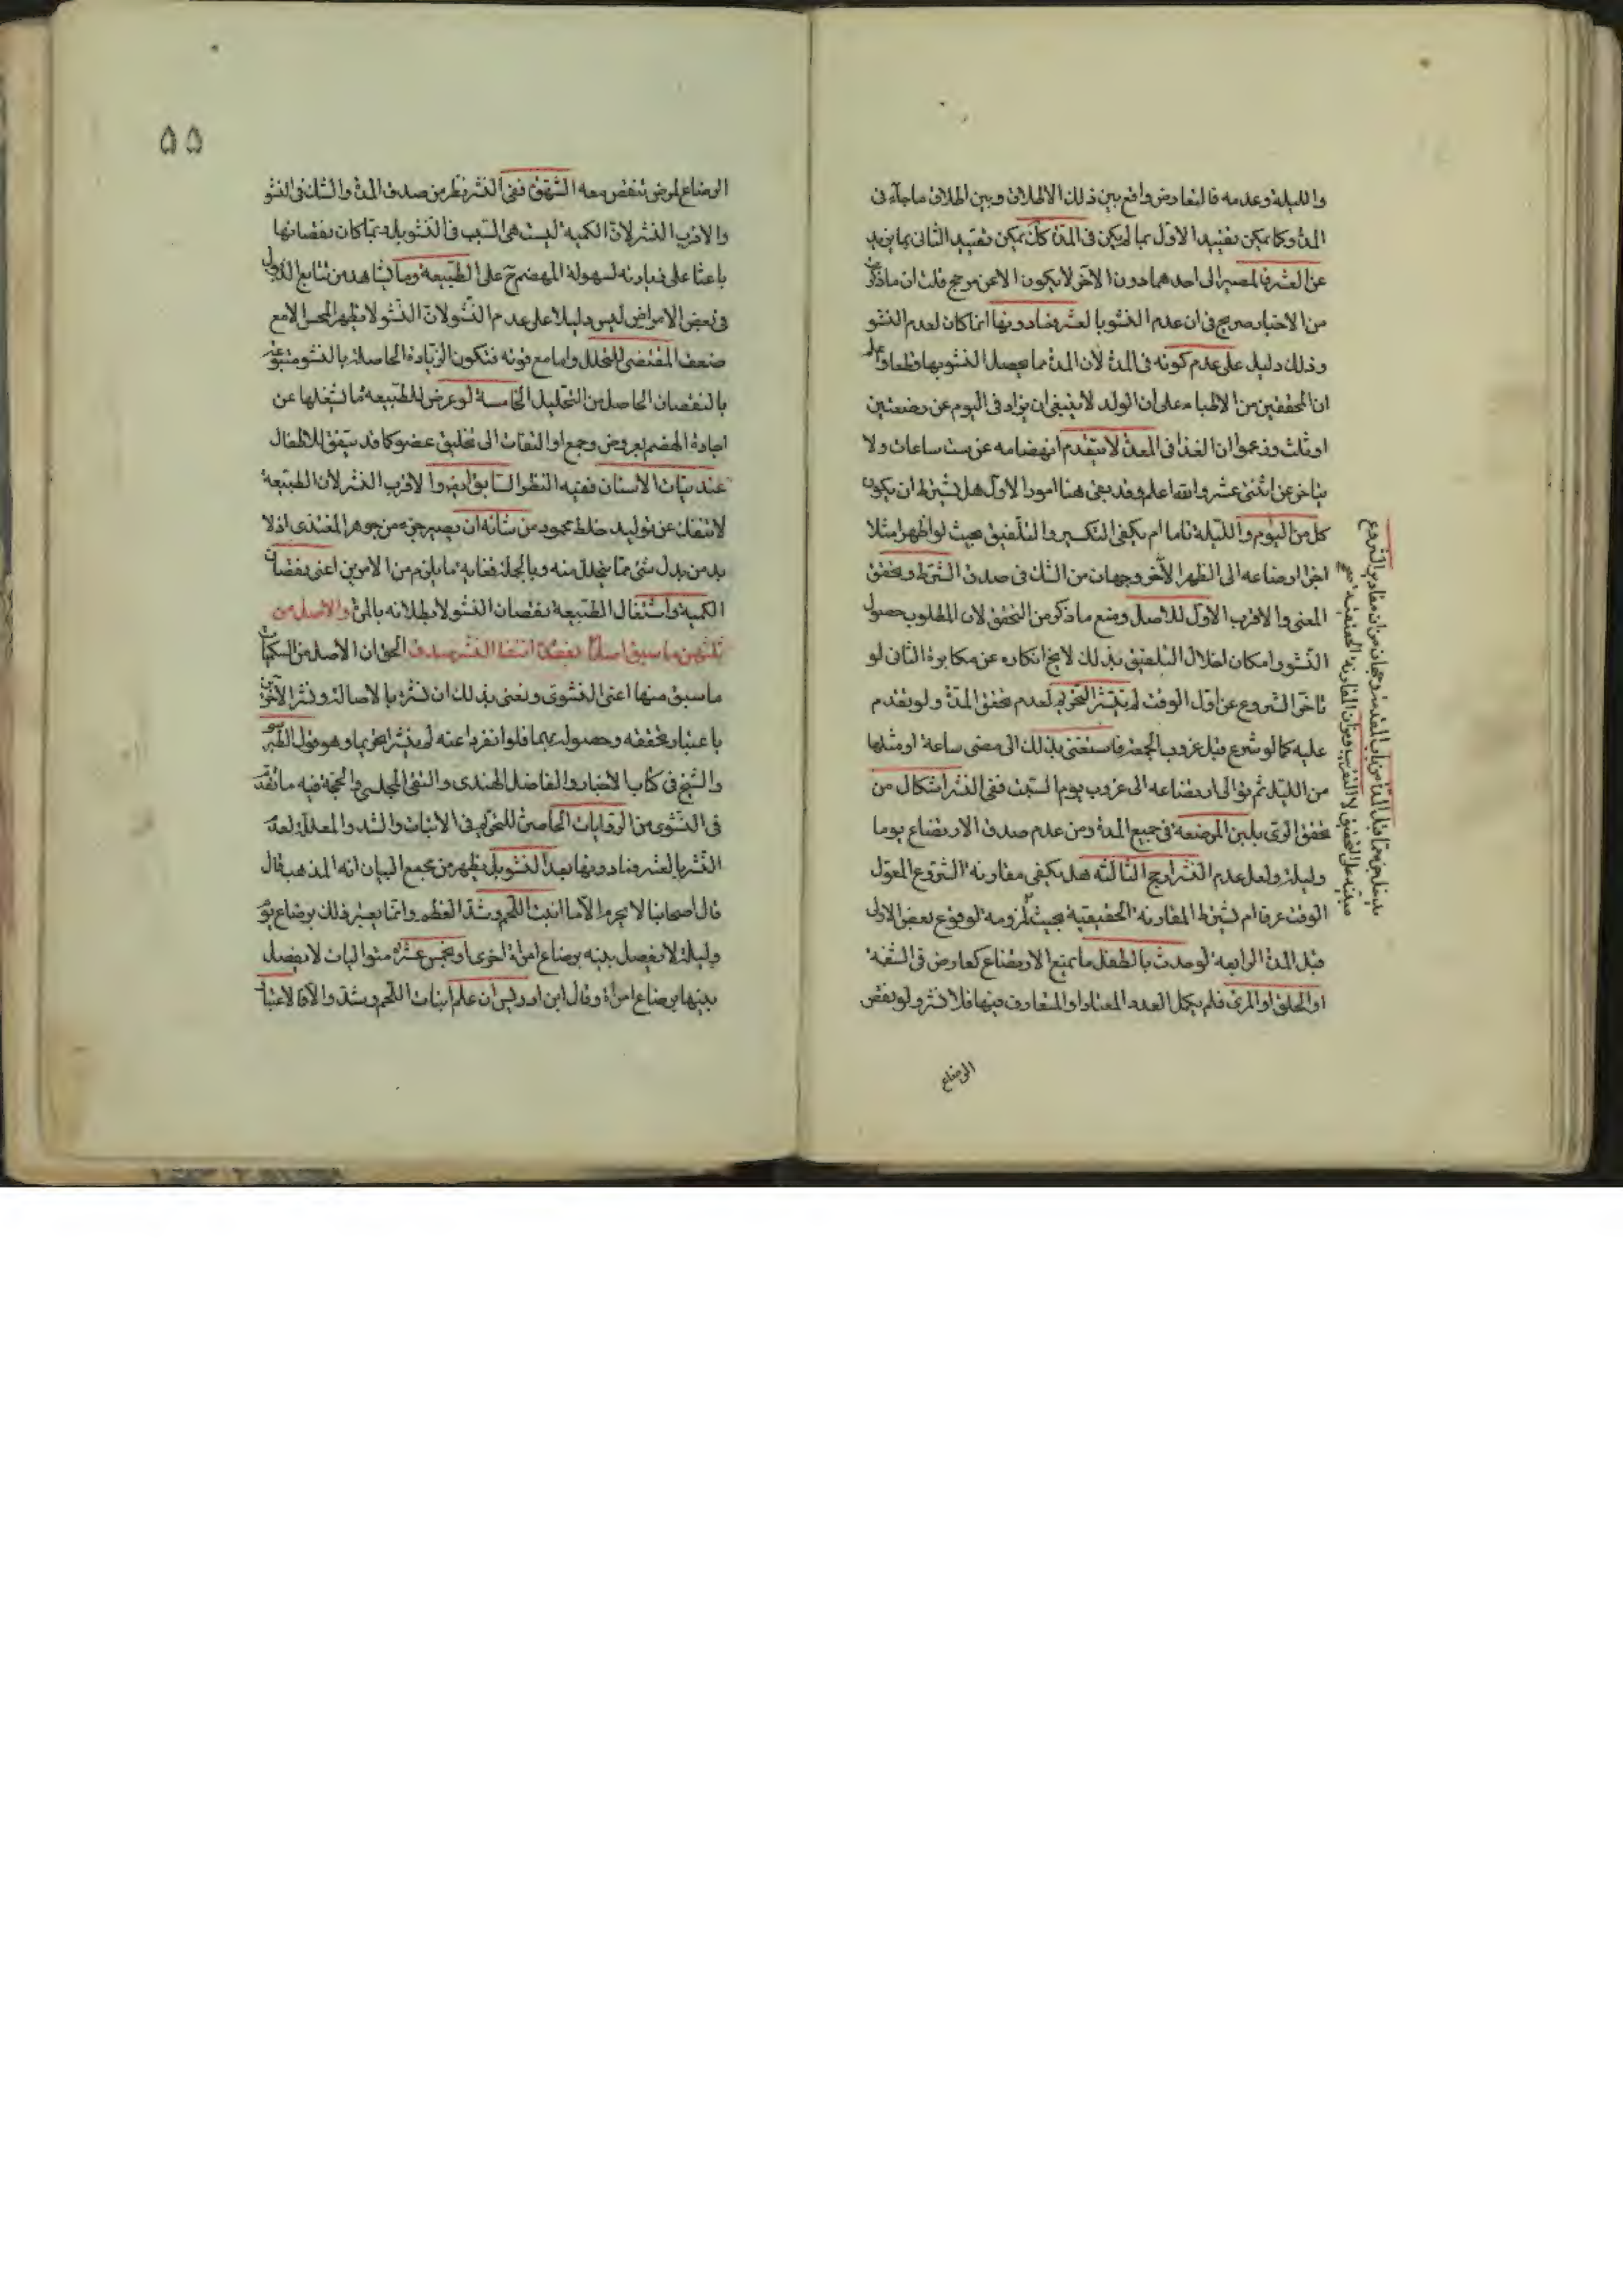 والليلة وعدمه فالتعارض واقع بين ذلك الاطلاق وبين اطلاق ماجآء فى
المدة وكما يمكن تقييد الاول بما لم يكن فى المدة كك يمكن تقييد الثانى بما يزيد
عن العشر فالمصير الى احدهما دون الآخر لا يكون الا عن مرجح قلت ان ما ذكر
من الاخبار صريح فى ان عدم النشو بالعشر فصادونها انما كان لعدم النشو
وذلك دليل على عدم كونه فى المدة لان المدة مما يحصل النشو بها قطعا و
ان المحققين من الاطباء على ان الولد لا ينبغى ان يزاد فى اليوم عن رضعتين
او ثلث وزعموا ان الغذا فى المعدة لا يتقدم انهضامه عن ست ساعات ولا
يتاخر عن اثنتى عشر والله اعلم وقد بقى هنا امور الاول هل يشترط ان يكون
كل من اليوم والليلة تاما ام يكفى التكسير والتلفيق بحيث لو اظهر مثلا
اجزا ارضاعه الى الظهر الآخر وجهان من الشك فى صدق الشرط وتحقق
المعنى والاقرب الاول للاصل ومنع ما ذكر من التحقق لان المطلوب حصول
النشو وامكان اخلال التلفيق بذلك لا يخ انكاره عن مكابرة الثانى لو
تاخر الشروع عن اول الوقت لم ينتشر التحريم لعدم تحقق المدة ولو تقدم
عليه كما لو شرع قبل غروب الجمعة فاستغنى بذلك الى مضى ساعة او مثلها
من الليل ثم توالى ارتضاعه الى غروب يوم السبت ففى النشر اشكال من
تحقق الرى بلبن المرضعة فى جميع المدة ومن عدم صدق الارتضاع يوما
وليلة ولعل عدم النشر ارجح الثالثة هل يكفى مقارنة الشروع المعول
الوقت عرفا ام يشترط المقارنة الحقيقية بحيث لزومه لو وقوع بعض الاولى
قبل المدة الرابعة لو حدث بالطفل ما يمنع الارتضاع كعارض فى الشفة
او الحلق او المرى فلم يكمل العدد المعتاد او المتعارف فيها فلا نشر ولو نقص
الرضاع
۵۵
الرضاع لمرض تنقص معه الشهوة ففى النشر نظر من صدق المدة والشك فى النشو
والاقرب النشر لان الكمية ليست هى السبب فى النشو بل ربما كان نقصانها
باعثا على زيادته لسهولة الهضم ح على الطبيعة وما يشاهد من تتابع الذبول
فى بعض الامراض ليس دليلا على عدم النشو لان النشو لا يظهر للحس الا مع
ضعف المقتضى للتحلل واما مع قوته فتكون الزيادة الحاصلة بالنشو
بالنقصان الحاصل من التحليل الخامسة لو عرض للطبيعة ما يشغلها عن
اجادة الهضم بعروض وجع او التفات الى تخليق عضو كما قد يتفق للاطفال
عند نبات الاسنان ففيه النظر السابق والاقرب النشر لان الطبيعة
لا تنفك عن توليد خلط محمود من شانه ان يصير جزء من جوهر المغتذى اذ لا
بد من بدل شئ مما يتحلل منه وبالجملة فغاية ما يلزم من الامرين اعنى نقصان
الكمية واشتغال الطبيعة نقصان النشو لا بطلانه بالمرة والاصل من
ما سبق اصلا الحق ان الاصل من
ما سبق منها اعنى النشوى ونعنى بذلك ان نشره بالاصالة ونشر الآخرين
باعتبار تحققه وحصوله بهما فلو انفردا عنه لم ينشرا تحريما وهو قول
والشيخ فى كتاب الاخبار والفاضل الهندى والتقى المجلسى والحجة فيه ما تقدم
فى النشوى من الروايات الحاصرة للتحريم فى الانبات والشد والمعللة لعدم
النشر بالعشر فصادونها بعدم النشو بل يظهر من مجمع البيان انه المذهب قال
قال اصحابنا لا يحرم الا ما انبت اللحم وشد العظم وانما يعتبر ذلك برضاع يوم
وليلة لا يفصل بينه برضاع امراة اخرى او بخمس عشرة متواليات لا يفصل
بينها برضاع امراة وقال ابن ادريس ان علم انبات اللحم وشد والا فالاعتبار